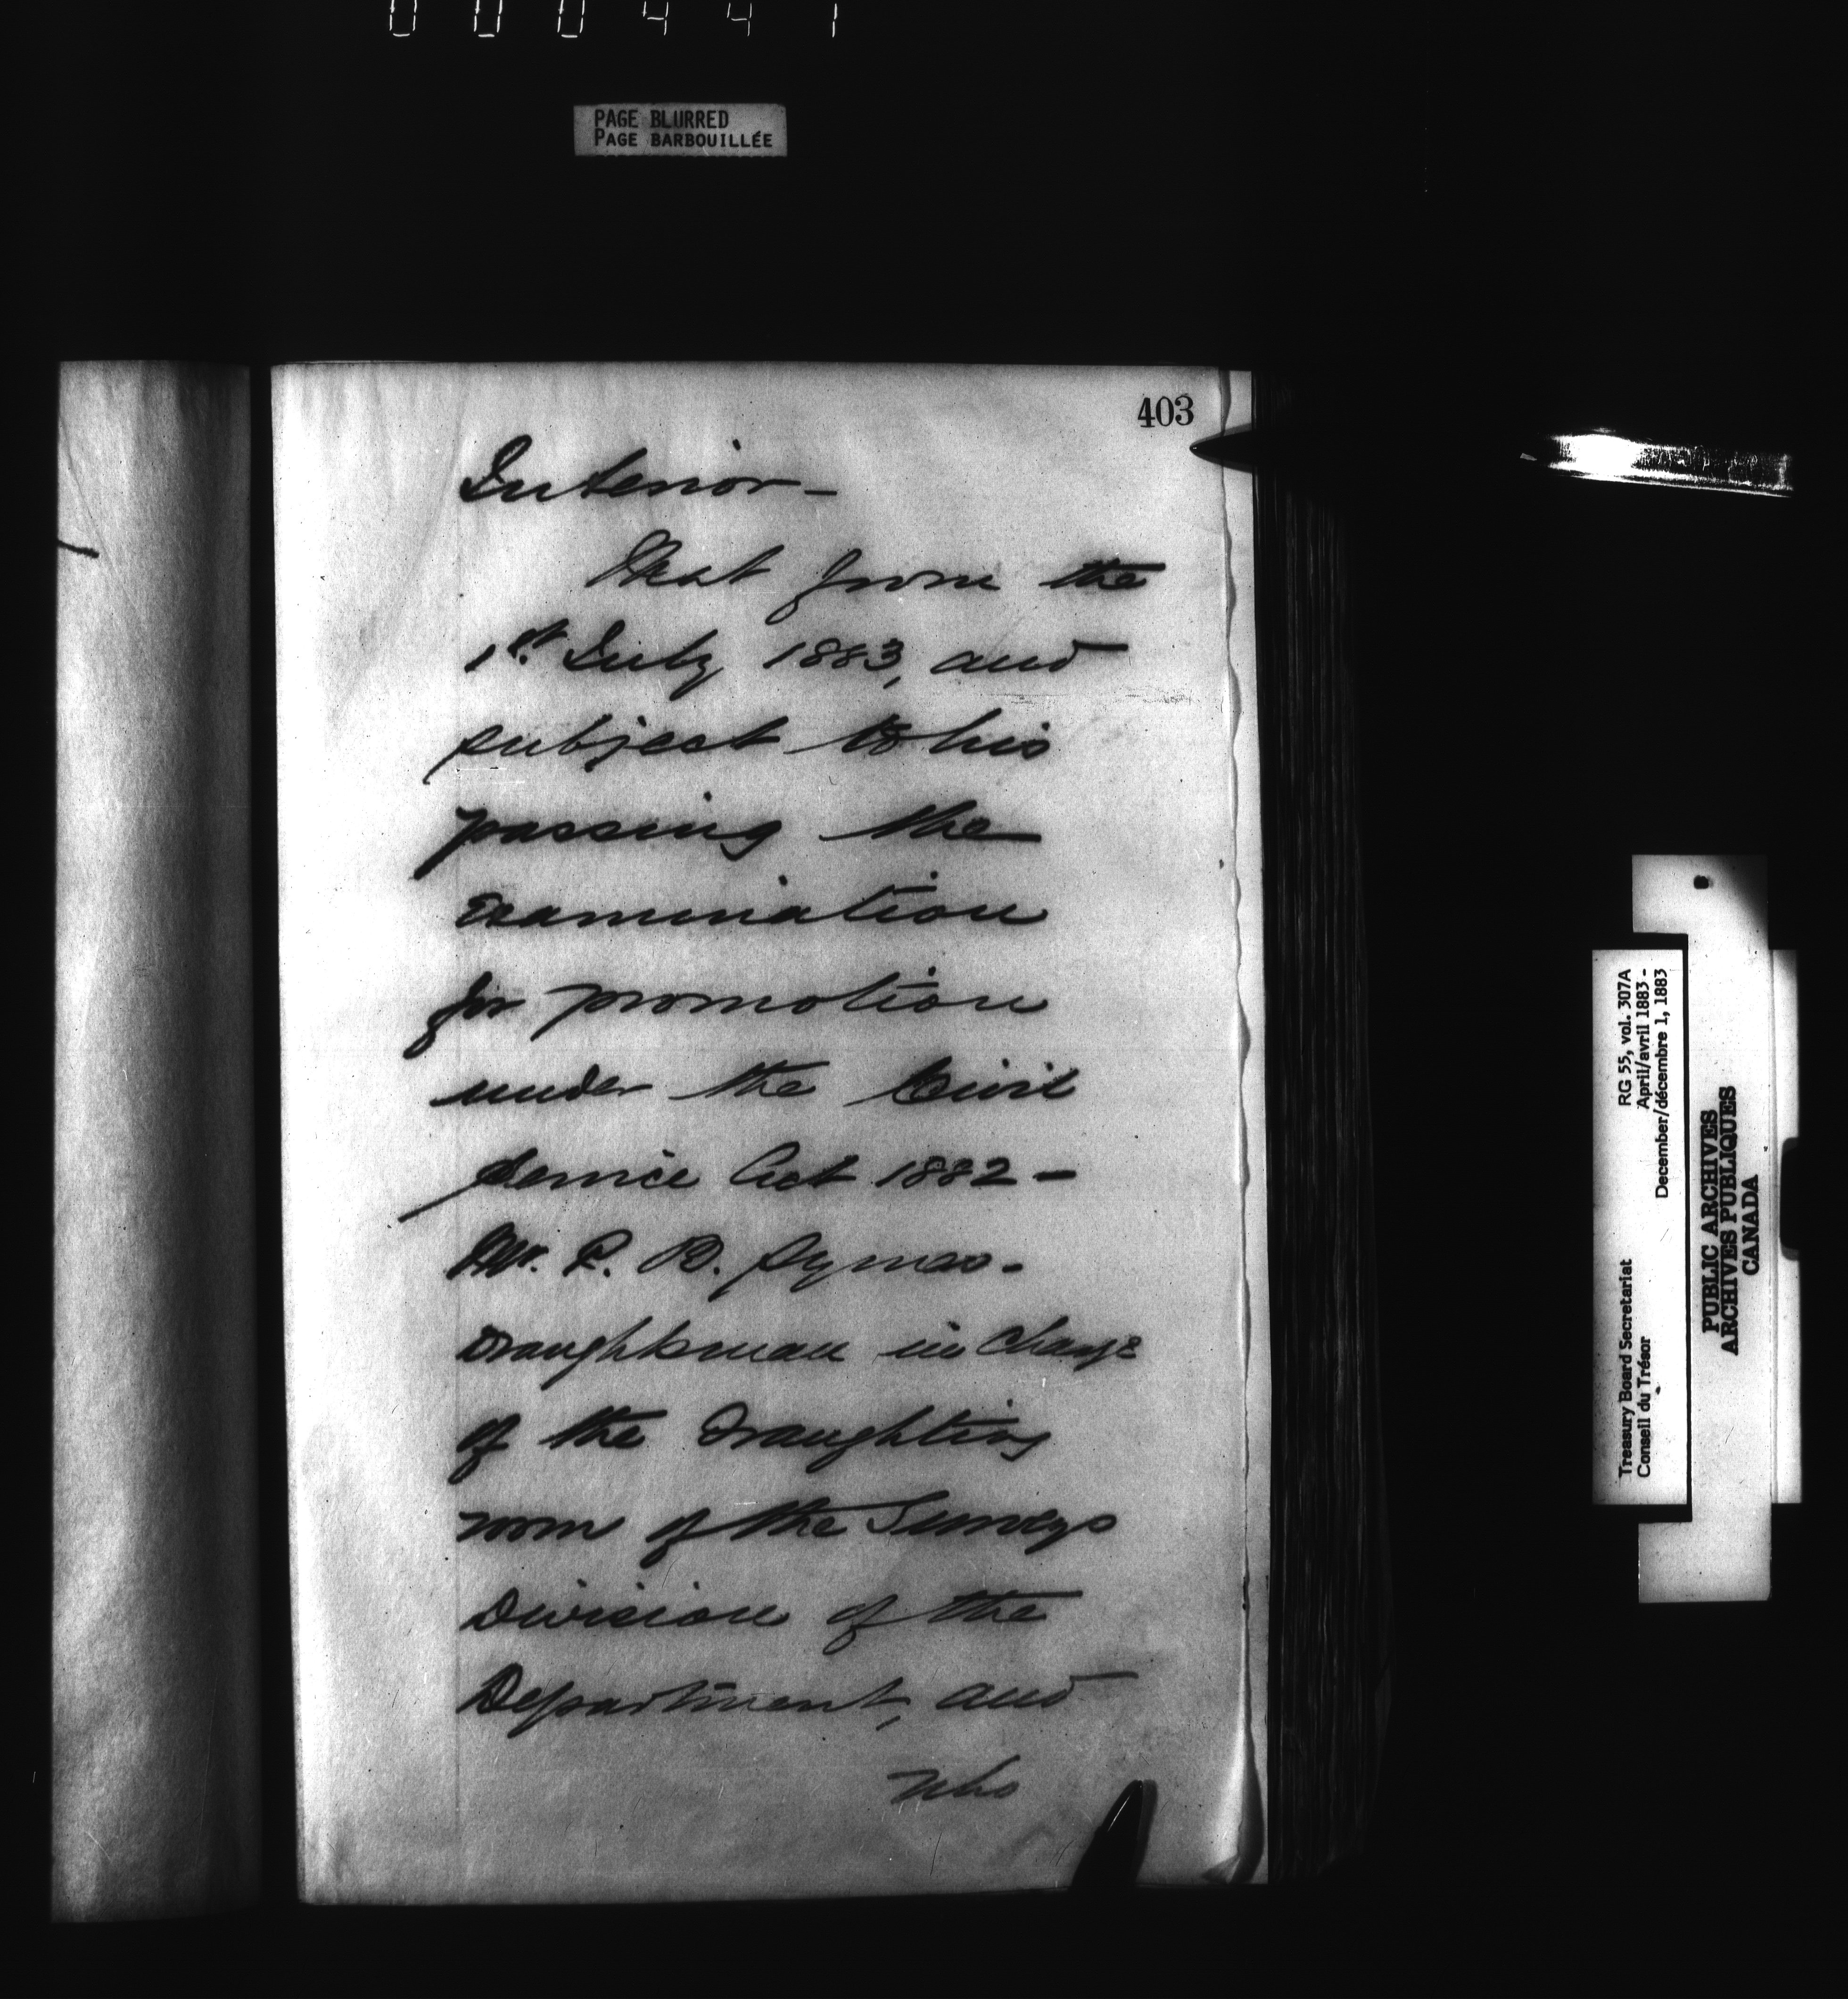 000441
PAGE BLURRED
PAGE BARBOUILLÉE
403
Interior—
That from the
1st July 1883, and
subject to his
passing the
examination
for promotion
under the Civil
Service Act 1882—
Mr. P. B. Symes.
Draughtsman in charge
of the Draughting
room of the Surveys
Division of the
Department, and
who
Treasury Board Secretariat RG 55, vol. 307A
Conseil du Trésor April/avril 1883 -
December/décembre 1, 1883
PUBLIC ARCHIVES
ARCHIVES PUBLIQUES
CANADA